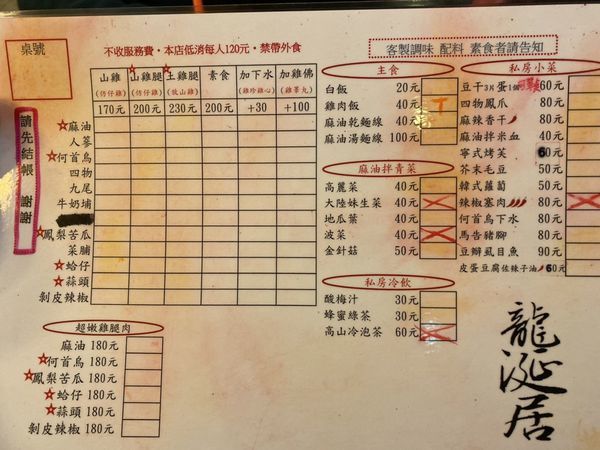 桌號
不收服務費・本店低消每人120元・禁帶外食
客製調味 配料 素食者請告知
請先結帳 謝謝
山雞 山雞腿 土雞腿 素食 加下水 加雞佛
(仿仔雞) (仿仔雞) (放山雞) (雞胗雞心) (雞睪丸)
170元 200元 230元 200元 +30 +100
☆麻油
人蔘
☆何首烏
四物
九尾
牛奶埔
☆鳳梨苦瓜
菜脯
☆蛤仔
☆蒜頭
剝皮辣椒
超嫩雞腿肉
麻油 180元
☆何首烏 180元
☆鳳梨苦瓜 180元
☆蛤仔 180元
☆蒜頭 180元
剝皮辣椒 180元
主食
白飯 20元
雞肉飯 40元
麻油乾麵線 40元
麻油湯麵線 100元
麻油拌青菜
高麗菜 40元
大陸妹生菜 40元
地瓜葉 40元
波菜 40元
金針菇 50元
私房冷飲
酸梅汁 30元
蜂蜜綠茶 30元
高山冷泡茶 60元
私房小菜
豆干3片蛋1個 60元
四物鳳爪 80元
麻辣香干 80元
麻油拌米血 40元
寧式烤芙 60元
芥末毛豆 50元
韓式蘿蔔 50元
辣椒塞肉 80元
何首烏下水 80元
馬告豬腳 80元
豆瓣虱目魚 90元
皮蛋豆腐佐辣子油 60元
龍涎居